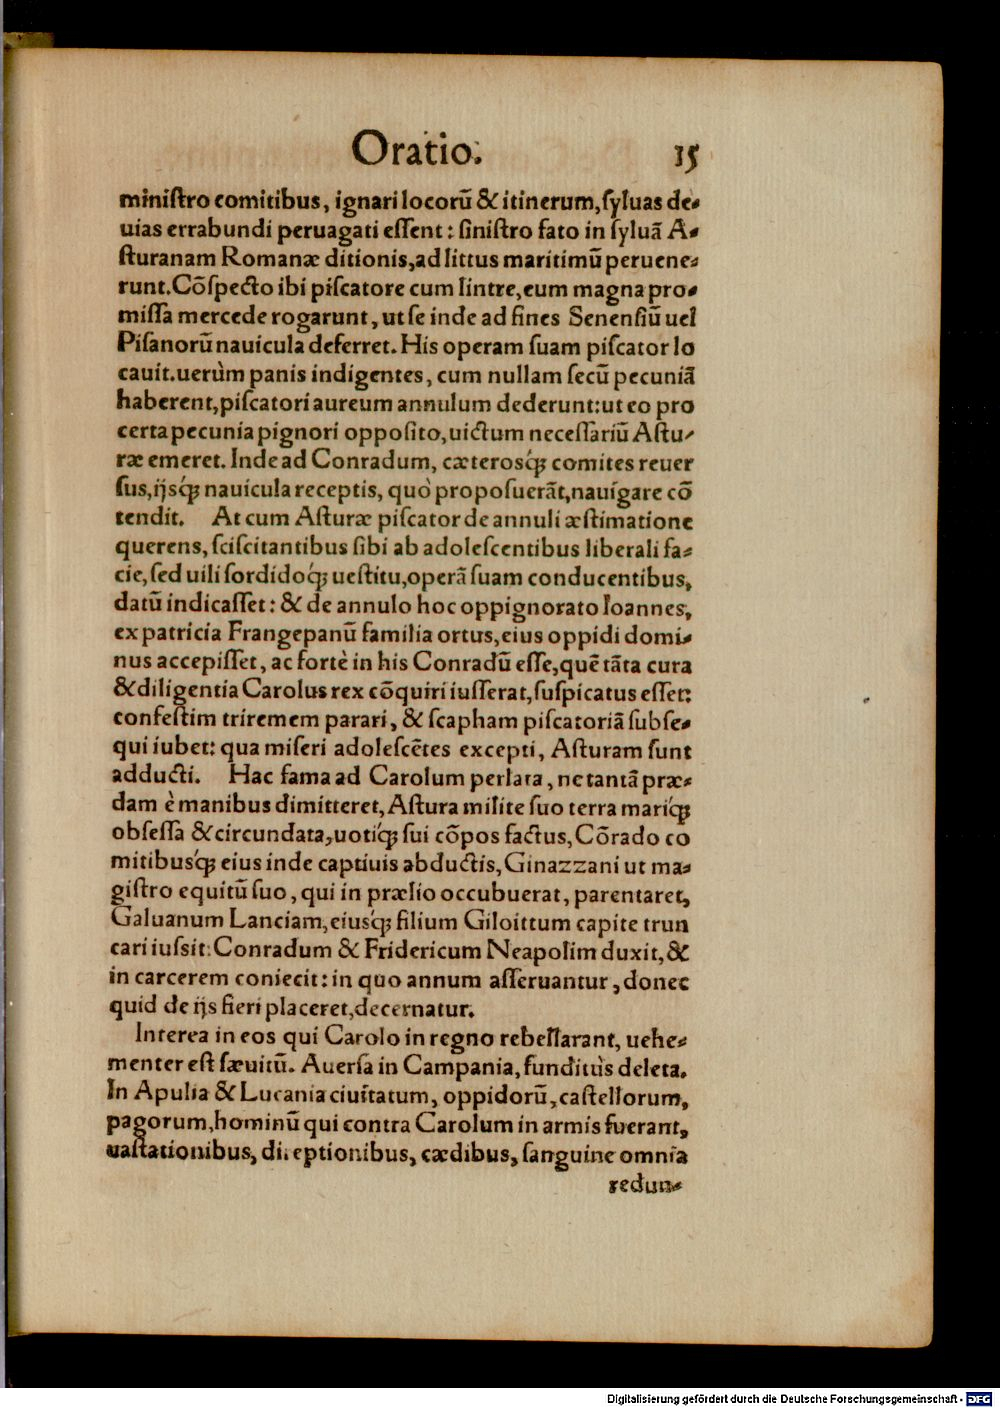 Oratio. 15
miniſtro comitibus, ignari locorũ & itinerum, ſyluas de-
uias errabundi peruagati eſſent: ſiniſtro fato in ſyluã A-
ſturanam Romanæ ditionis, ad littus maritimũ peruene-
runt. Cõſpecto ibi piſcatore cum lintre, eum magna pro-
miſſa mercede rogarunt, ut ſe inde ad fines Senenſiũ uel
Piſanorũ nauicula deferret. His operam ſuam piſcator lo
cauit. uerùm panis indigentes, cum nullam ſecũ pecuniã
haberent, piſcatori aureum annulum dederunt: ut eo pro
certa pecunia pignori oppoſito, uictum neceſſariũ Aſtu-
ræ emeret. Inde ad Conradum, cæterosq́; comites reuer
ſus, ijsq́; nauicula receptis, quò propoſuerãt, nauigare cõ
tendit. At cum Aſturæ piſcator de annuli æſtimatione
querens, ſciſcitantibus ſibi ab adoleſcentibus liberali fa-
cie, ſed uili ſordidoq́; ueſtitu, operã ſuam conducentibus,
datũ indicaſſet: & de annulo hoc oppignorato Ioannes,
ex patricia Frangepanũ familia ortus, eius oppidi domi-
nus accepiſſet, ac fortè in his Conradũ eſſe, quẽ tãta cura
& diligentia Carolus rex cõquiri iuſſerat, ſuſpicatus eſſet:
confeſtim triremem parari, & ſcapham piſcatoriã ſubſe-
qui iubet: qua miſeri adoleſcẽtes excepti, Aſturam ſunt
adducti. Hac fama ad Carolum perlata, ne tantã præ-
dam è manibus dimitteret, Aſtura milite ſuo terra mariq́;
obſeſſa & circundata, uotiq́; ſui cõpos factus, Cõrado co
mitibusq́; eius inde captiuis abductis, Ginazzani ut ma-
giſtro equitũ ſuo, qui in prælio occubuerat, parentaret,
Galuanum Lanciam, eiusq́; filium Giloittum capite trun
cari iuſsit. Conradum & Fridericum Neapolim duxit, &
in carcerem coniecit: in quo annum aſſeruantur, donec
quid de ijs fieri placeret, decernatur.
Interea in eos qui Carolo in regno rebellarant, uehe-
menter eſt ſæuitũ. Auerſa in Campania, funditùs deleta.
In Apulia & Lucania ciuitatum, oppidorũ, caſtellorum,
pagorum, hominũ qui contra Carolum in armis fuerant,
uaſtationibus, direptionibus, cædibus, ſanguine omnia
redun-
Digitalisierung gefördert durch die Deutsche Forschungsgemeinschaft - DFG